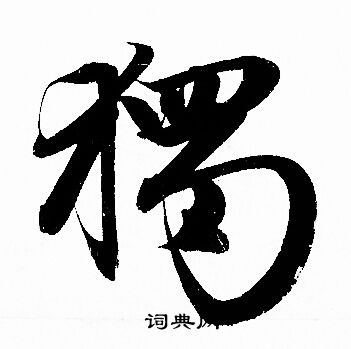 獨
词典网